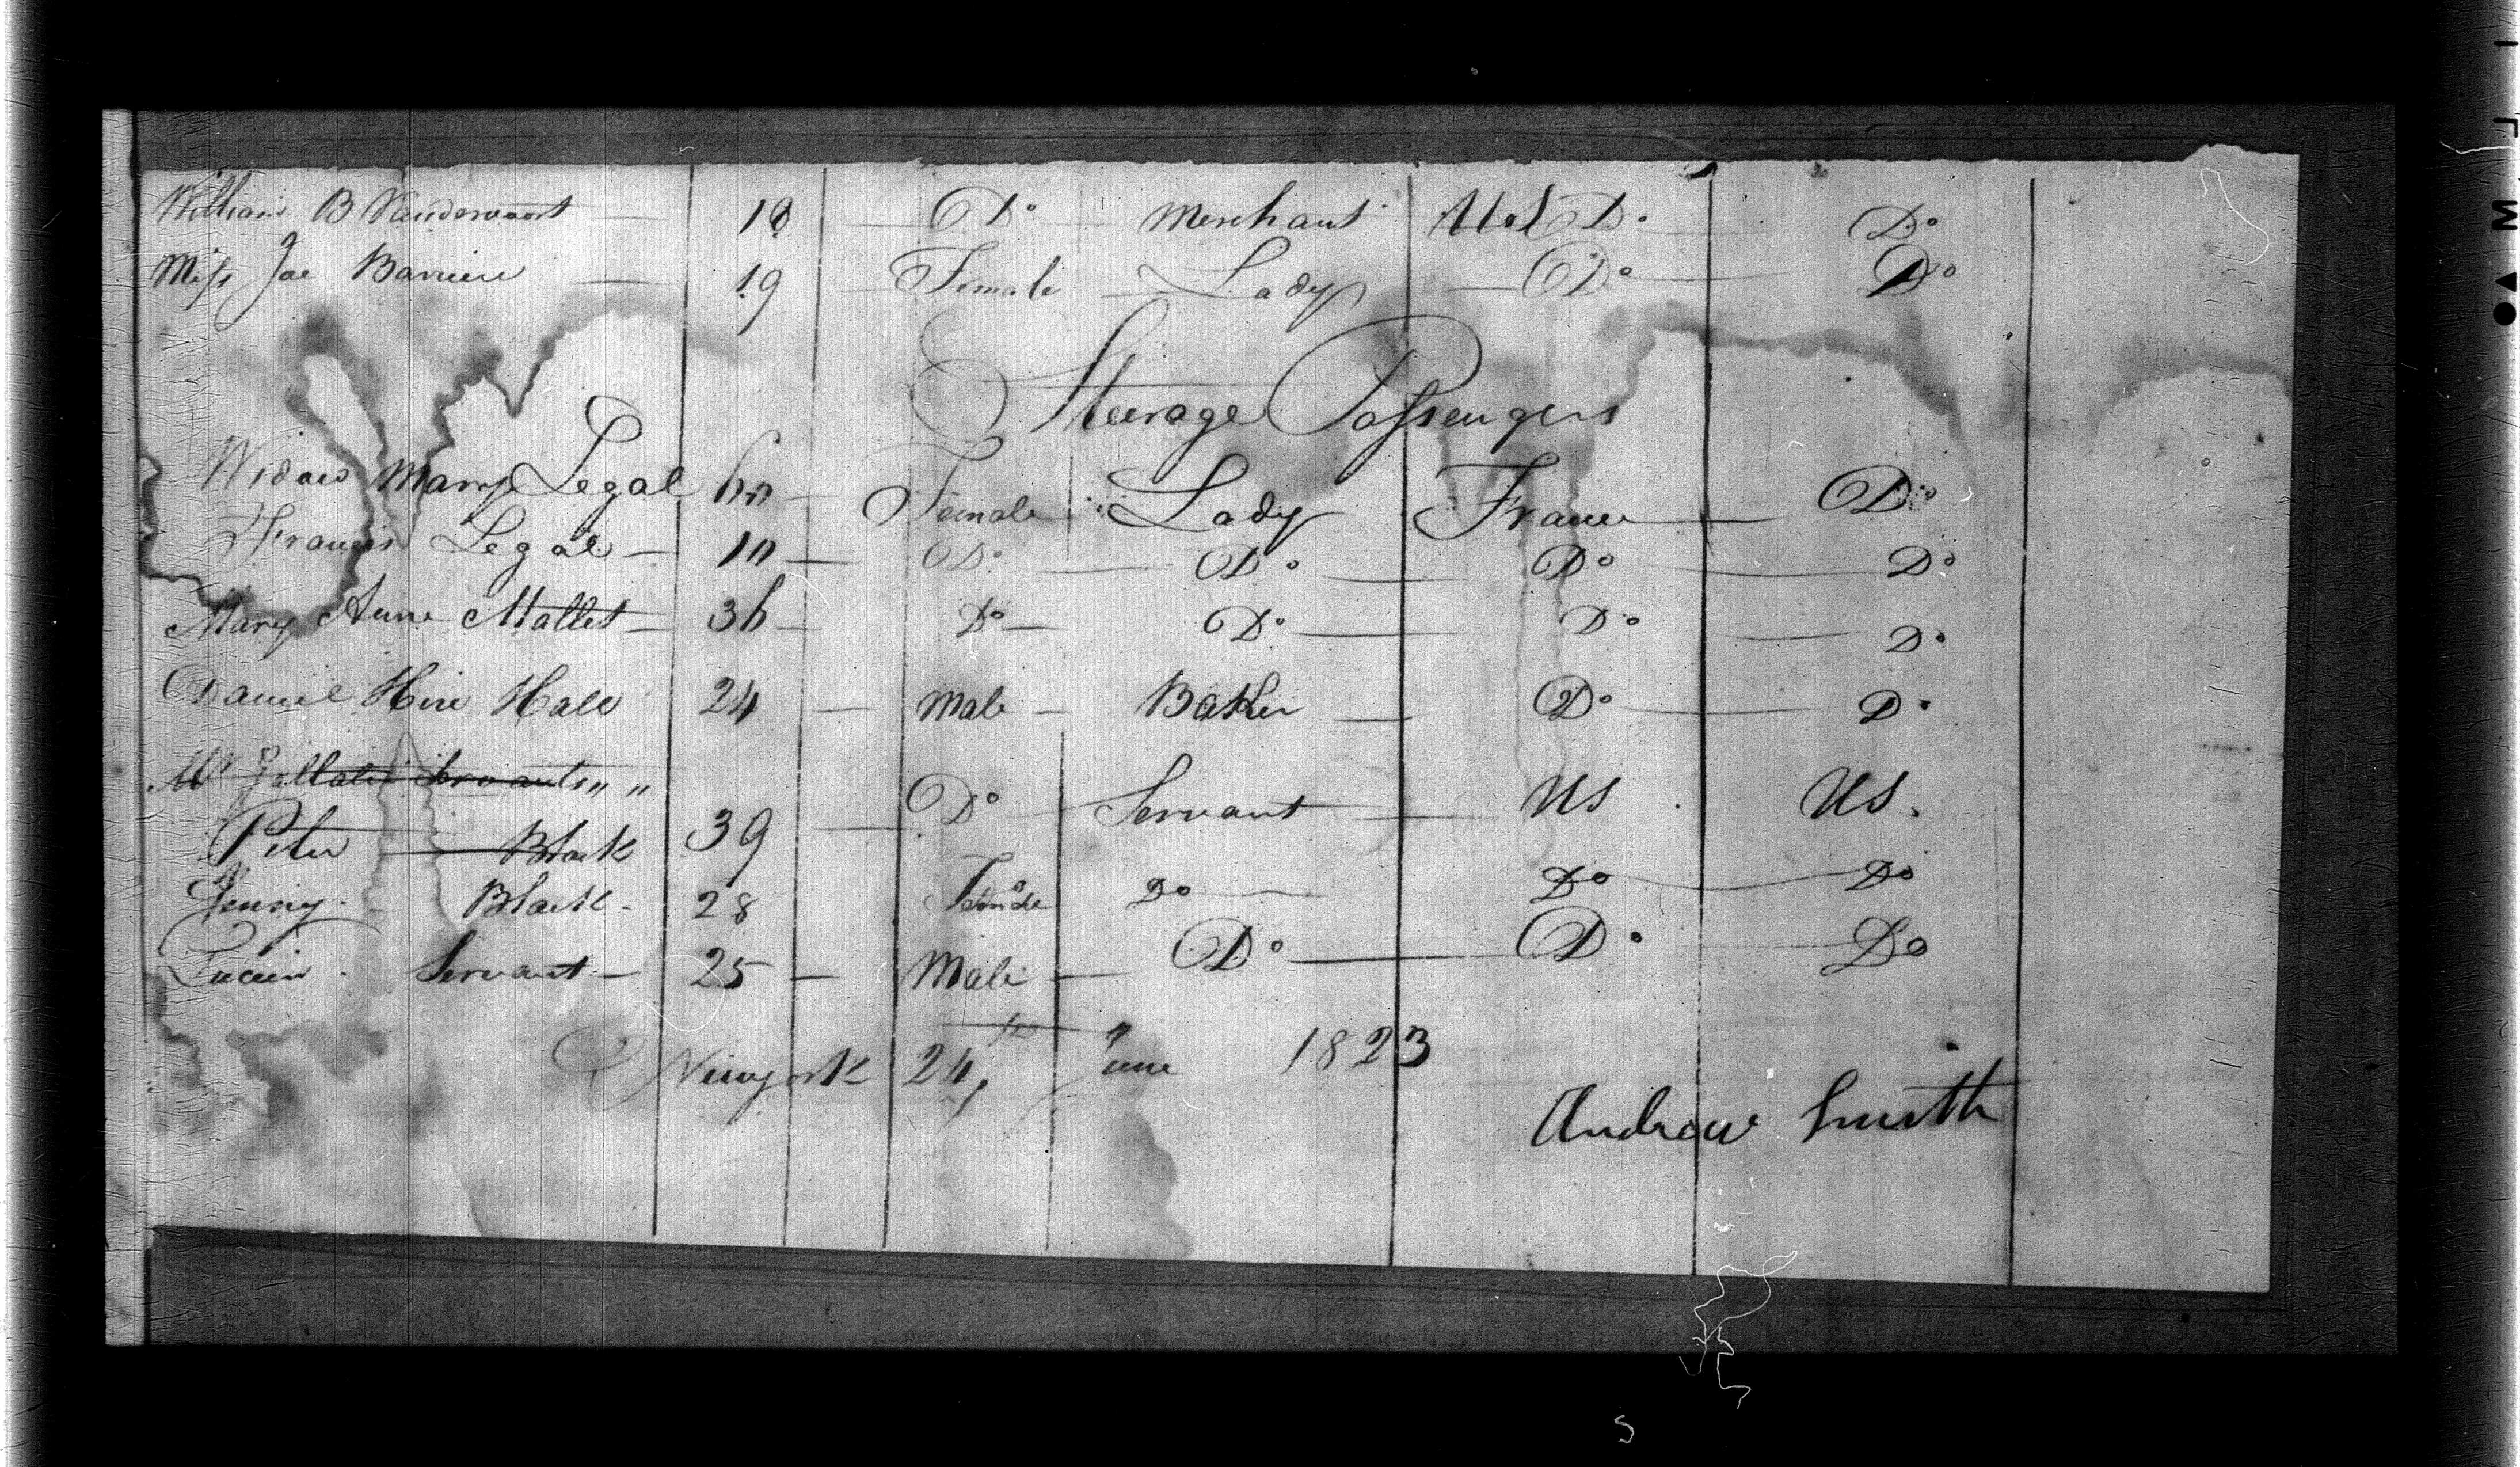 William B Vandervoort — 18 — Do Merchant US Do Do
Miss Jae Barriere — 19 — Female — Lady — Do — Do
Steerage Passengers
Widow Mary Legal 60 — Female Lady France — Do
Francis Legal — 10 — Do — Do — Do — Do
Mary Anne Mallet — 36 — Do — Do — Do — Do
Daniel Hall 24 — Male — Baker — Do — Do
Mr Gallatin Servants " "
Peter — Black 39 — Do Servant — US US.
Jenny. Black - 28 Female Do — Do — Do
Servant — 25 — Male — Do — Do Do
Newyork 24, June 1823
Andrew Smith